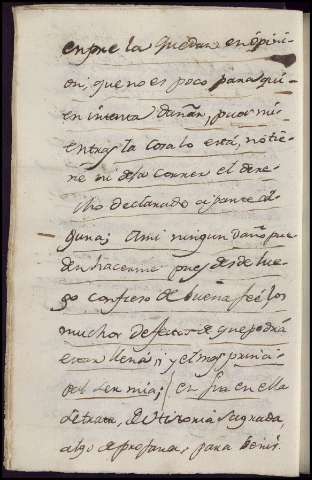 empre la quedan en òpini-
on, que no es poco para qui-
en intenta dañar, pues mi-
entras la cosa lo està, no tie-
ne ni deja correr el dere-
cho declarado a parte al-
guna; Ami ningun daño pue-
den hacerme pues desde lue-
go confieso de buena feé, los
muchos defectos de que podrá
estar llena; y el mas princi-
pal ser mia; en fin en ella
se trata, de Historia Sagrada,
algo de profana, para benir